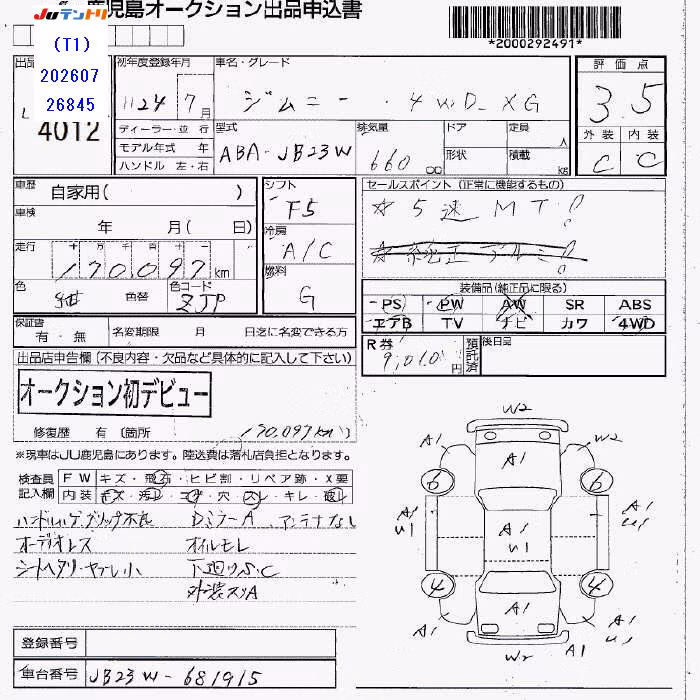 JUテントリ 鹿児島オークション出品申込書
*2000292491*
(T1)
202607
26845
4012
初年度登録年月
H24 7月
ディーラー・並 行
モデル年式 年
ハンドル 左・右
車名・グレード
ジムニー・4WD XG
型式
ABA-JB23W
排気量
660 cc
ドア
形状
定員 人
積載 kg
評価点
3.5
外装 内装
C C
車歴 自家用( )
車検 年 月( 日)
走行 十 万 千 百 十 一
170097km
色
色替
色コード
ZJP
シフト
F5
冷房
A/C
燃料
G
セールスポイント (正常に機能するもの)
☆ 5速 MT!
☆ 純正アルミ!
装備品(純正品に限る)
PS PW AW SR ABS
エアB TV ナビ カワ 4WD
保証書
有・無
名変期限 月 日迄に名変できる方
R券
9,010円
預託済
後日品
出品店申告欄 (不良内容・欠品など具体的に記入して下さい)
オークション初デビュー
修復歴 有 〔箇所
170,097km
※現車はJU鹿児島にあります。陸送費は落札店負担となります。
検査員
記入欄
FW キズ・飛石・ヒビ割・リペア跡・X要
内装 キズ・汚レ・コゲ・穴・スレ・キレ・破レ
ハンドル、シフトグリップ不良 DミラーA アンテナなし
オーディオレス オイルモレ
シートヘタリ・ヤブレ小 下廻りS・C
外装スリA
W2
A1 A1 W2
6 6
A1 A1 A1
U1 U1 U1
4 4
A1 A1 A1
U1
W2 A1
登録番号
車台番号 JB23W-681915